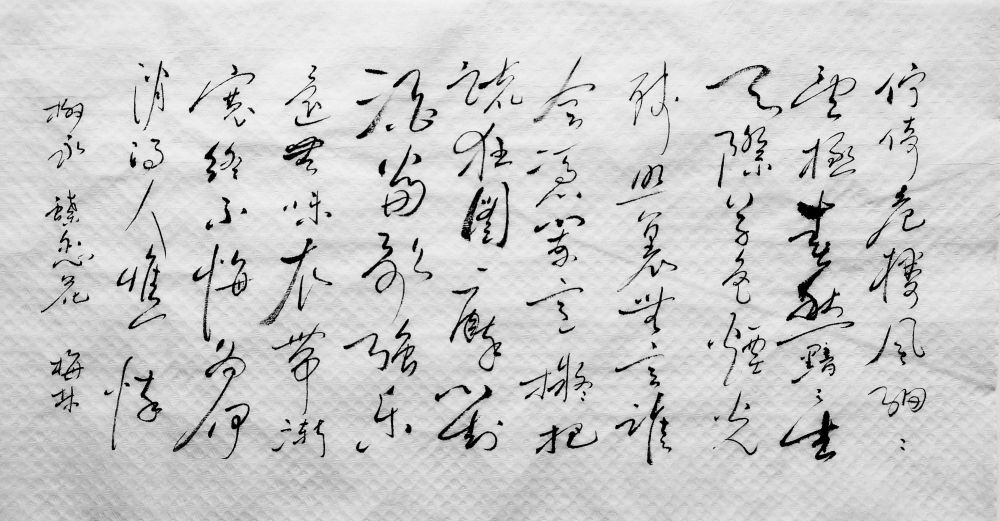 佇倚危樓風細〻
望極春愁黯〻生
天際草色煙光
殘照裏無言誰
會憑闌意擬把
疏狂圖一醉對
酒當歌強乐
還無味衣帶漸
寬終不悔為伊
消得人憔悴
柳永 蝶恋花 梅林